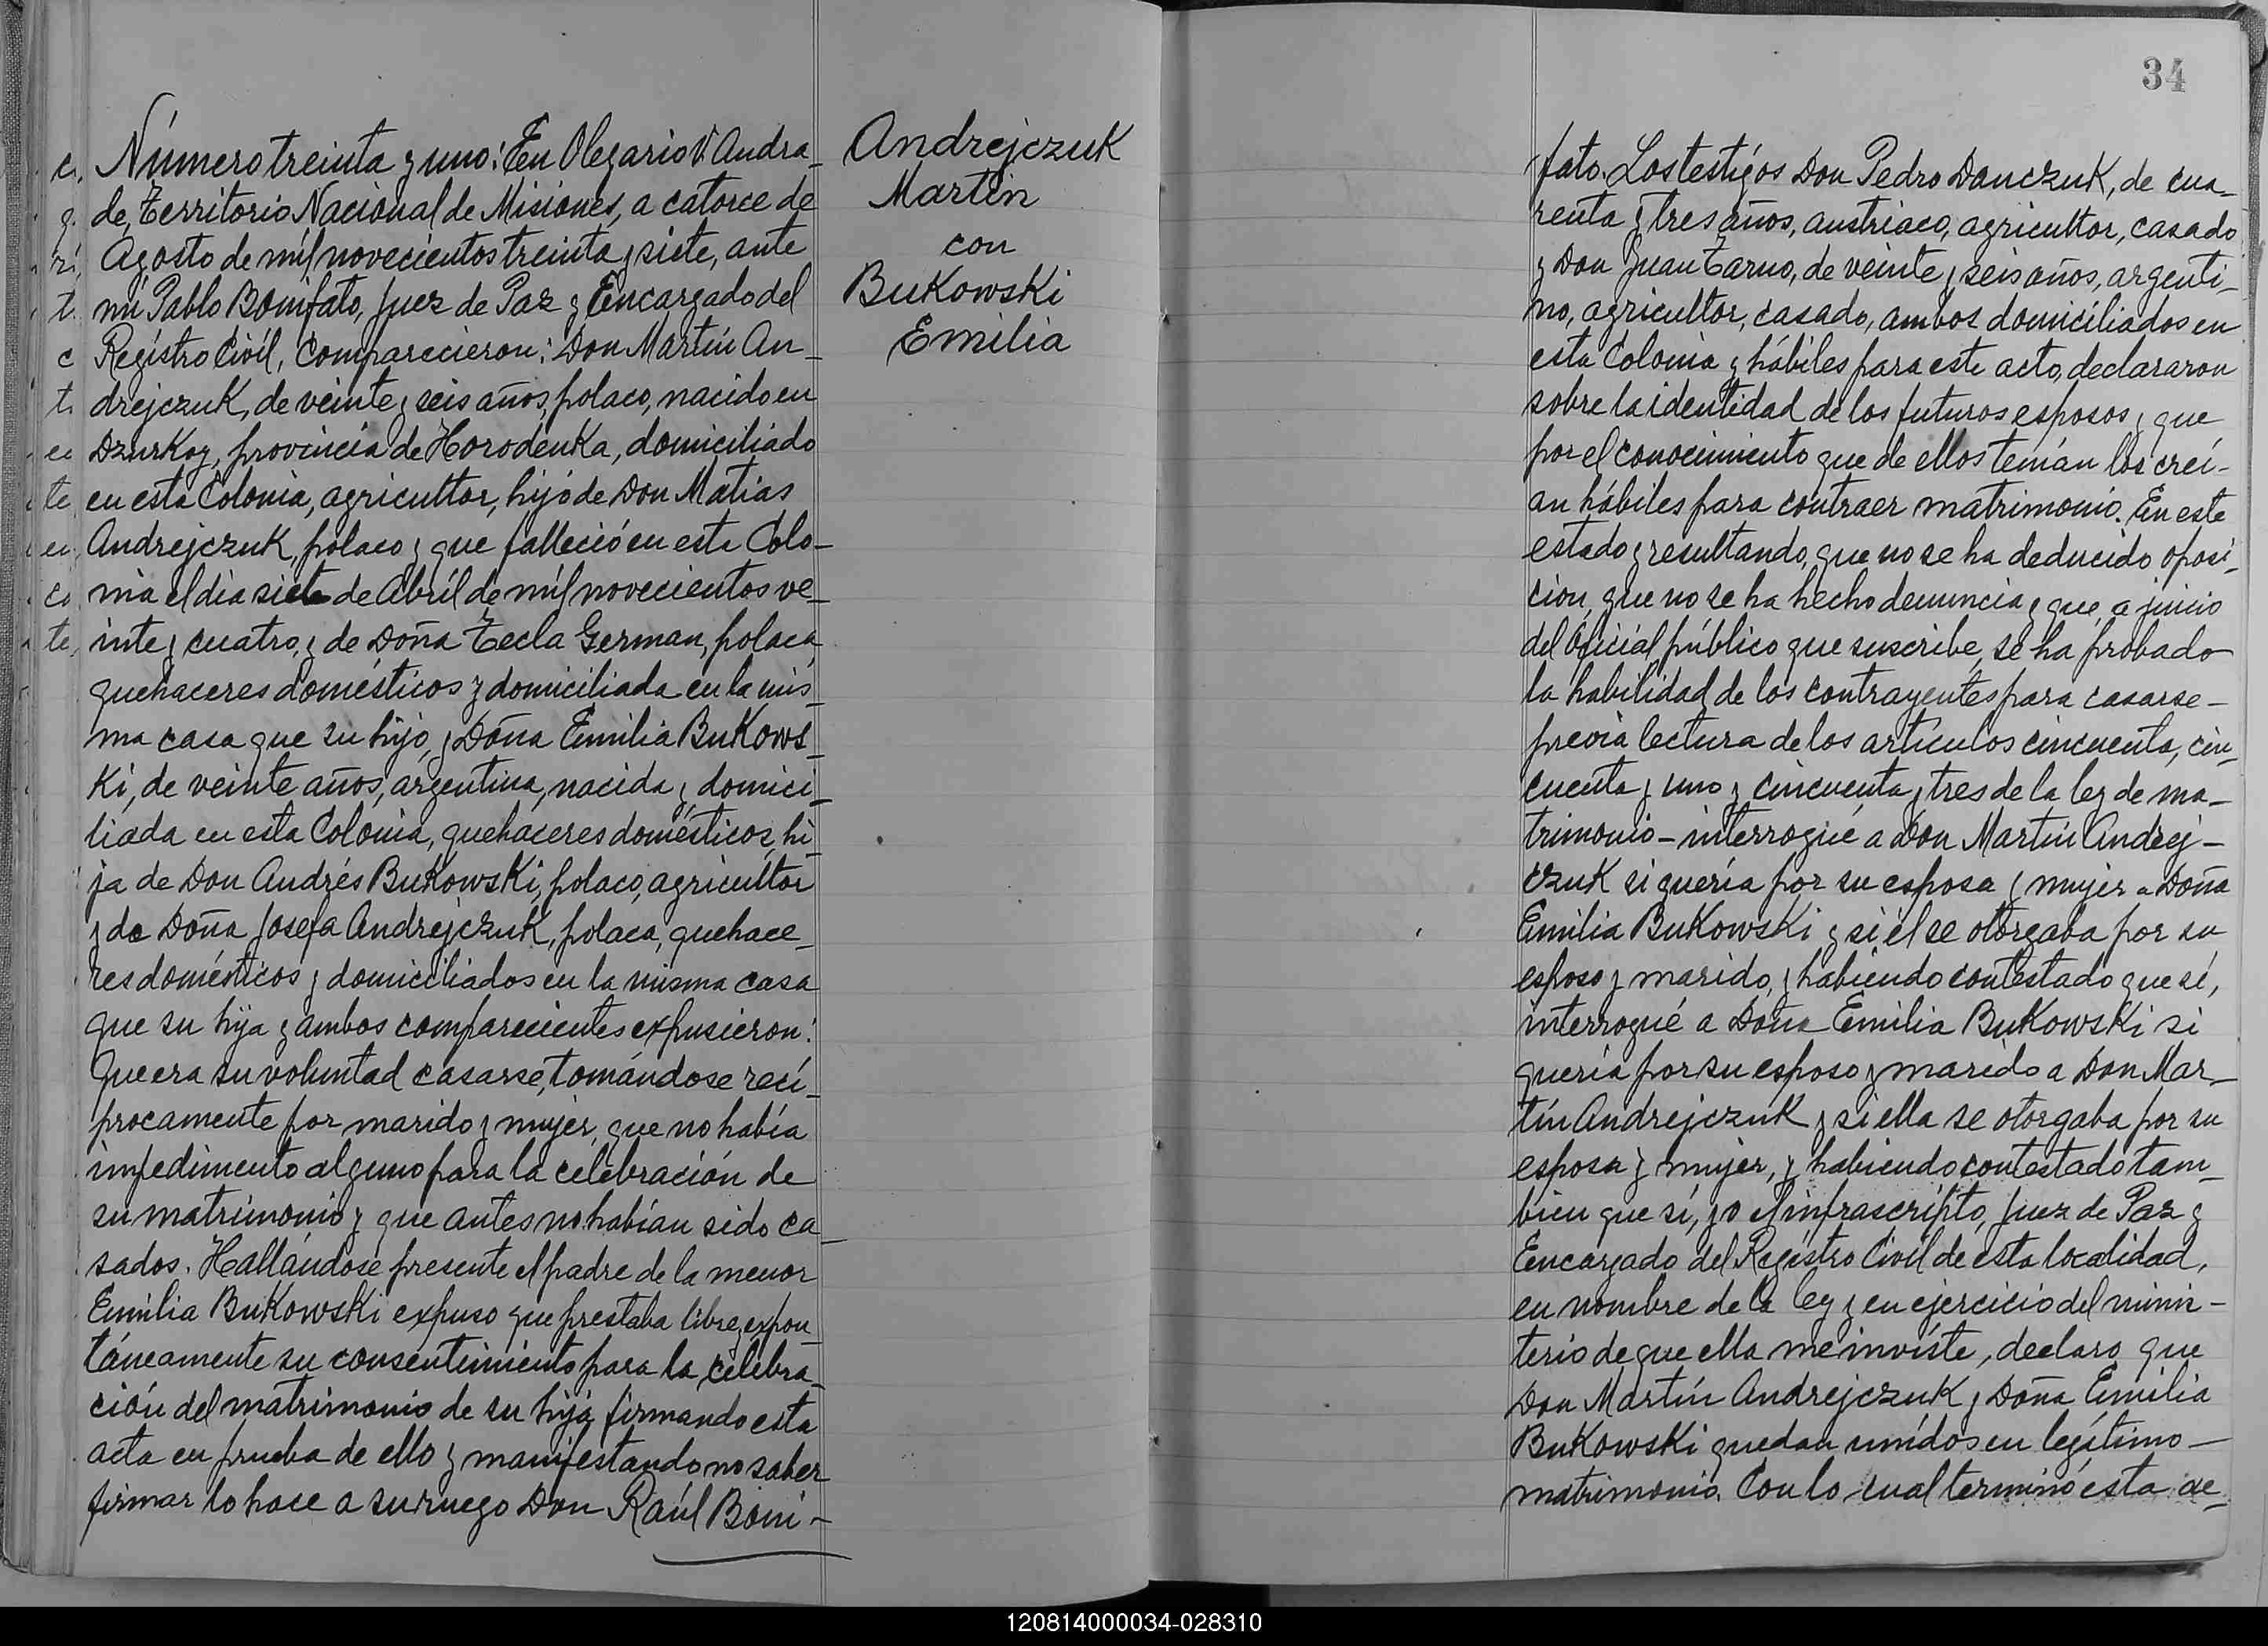 Número treinta y uno: En Olegario V. Andra-
de, Territorio Nacional de Misiones, a catorce de
Agosto de mil novecientos treinta y siete, ante
mi Pablo Bonifato, Juez de Paz y Encargado del
Registro Civil, comparecieron: Don Martín An-
drejczuk, de veinte y seis años, polaco, nacido en
Dzurkoy, provincia de Horodenka, domiciliado
en esta Colonia, agricultor, hijo de Don Matias
Andrejczuk, polaco y que falleció en esta Colo-
nia el dia siete de Abril de mil novecientos ve-
inte y cuatro, y de Doña Tecla German, polaca,
quehaceres domésticos y domiciliada en la mis-
ma casa que su hijo, y Doña Emilia Bukows-
ki, de veinte años, argentina, nacida y domici-
liada en esta Colonia, quehaceres domésticos, hi-
ja de Don Andrés Bukowski, polaco, agricultor
y de Doña Josefa Andrejczuk, polaca, quehace-
res domésticos y domiciliados en la misma casa
que su hija y ambos comparecientes expusieron:
Que era su voluntad casarse, tomándose recí-
procamente por marido y mujer, que no había
impedimento alguno para la celebración de
su matrimonio y que antes no habían sido ca-
sados. Hallándose presente el padre de la menor
Emilia Bukowski expuso que prestaba libre y expon-
táneamente su consentimiento para la celebra-
ción del matrimonio de su hija firmando esta
acta en prueba de ello y manifestando no saber
firmar lo hace a su ruego Don Raúl Boni-
Andrejczuk
Martin
con
Bukowski
Emilia
34
fato. Los testigos Don Pedro Danczuk, de cua-
renta y tres años, austriaco, agricultor, casado
y Don Juan Tarno, de veinte y seis años, argenti-
no, agricultor, casado, ambos domiciliados en
esta Colonia y hábiles para este acto, declararon
sobre la identidad de los futuros esposos y que
por el conocimiento que de ellos tenían los creí-
an hábiles para contraer matrimonio. En este
estado y resultando, que no se ha deducido oposi-
cion, que no se ha hecho denuncia y que, a juicio
del oficial público que suscribe, se ha probado
la habilidad de los contrayentes para casarse-
previa lectura de los articulos cincuenta, cin-
cuenta y uno y cincuenta y tres de la ley de ma-
trimonio - interrogué a Don Martín Andrej-
czuk si quería por su esposa y mujer a Doña
Emilia Bukowski y si él se otorgaba por su
esposo y marido, y habiendo contestado que sí,
interrogué a Doña Emilia Bukowski si
quería por su esposo y marido a Don Mar-
tín Andrejczuk y si ella se otorgaba por su
esposa y mujer, y habiendo contestado tam-
bien que sí, yo el infrascripto, Juez de Paz y
Encargado del Registro Civil de esta localidad,
en nombre de la ley y en ejercicio del minis-
terio de que ella me inviste, declaro que
Don Martín Andrejczuk y Doña Emilia
Bukowski quedan unidos en legítimo
matrimonio. Con lo cual terminó esta ac-
120814000034-028310